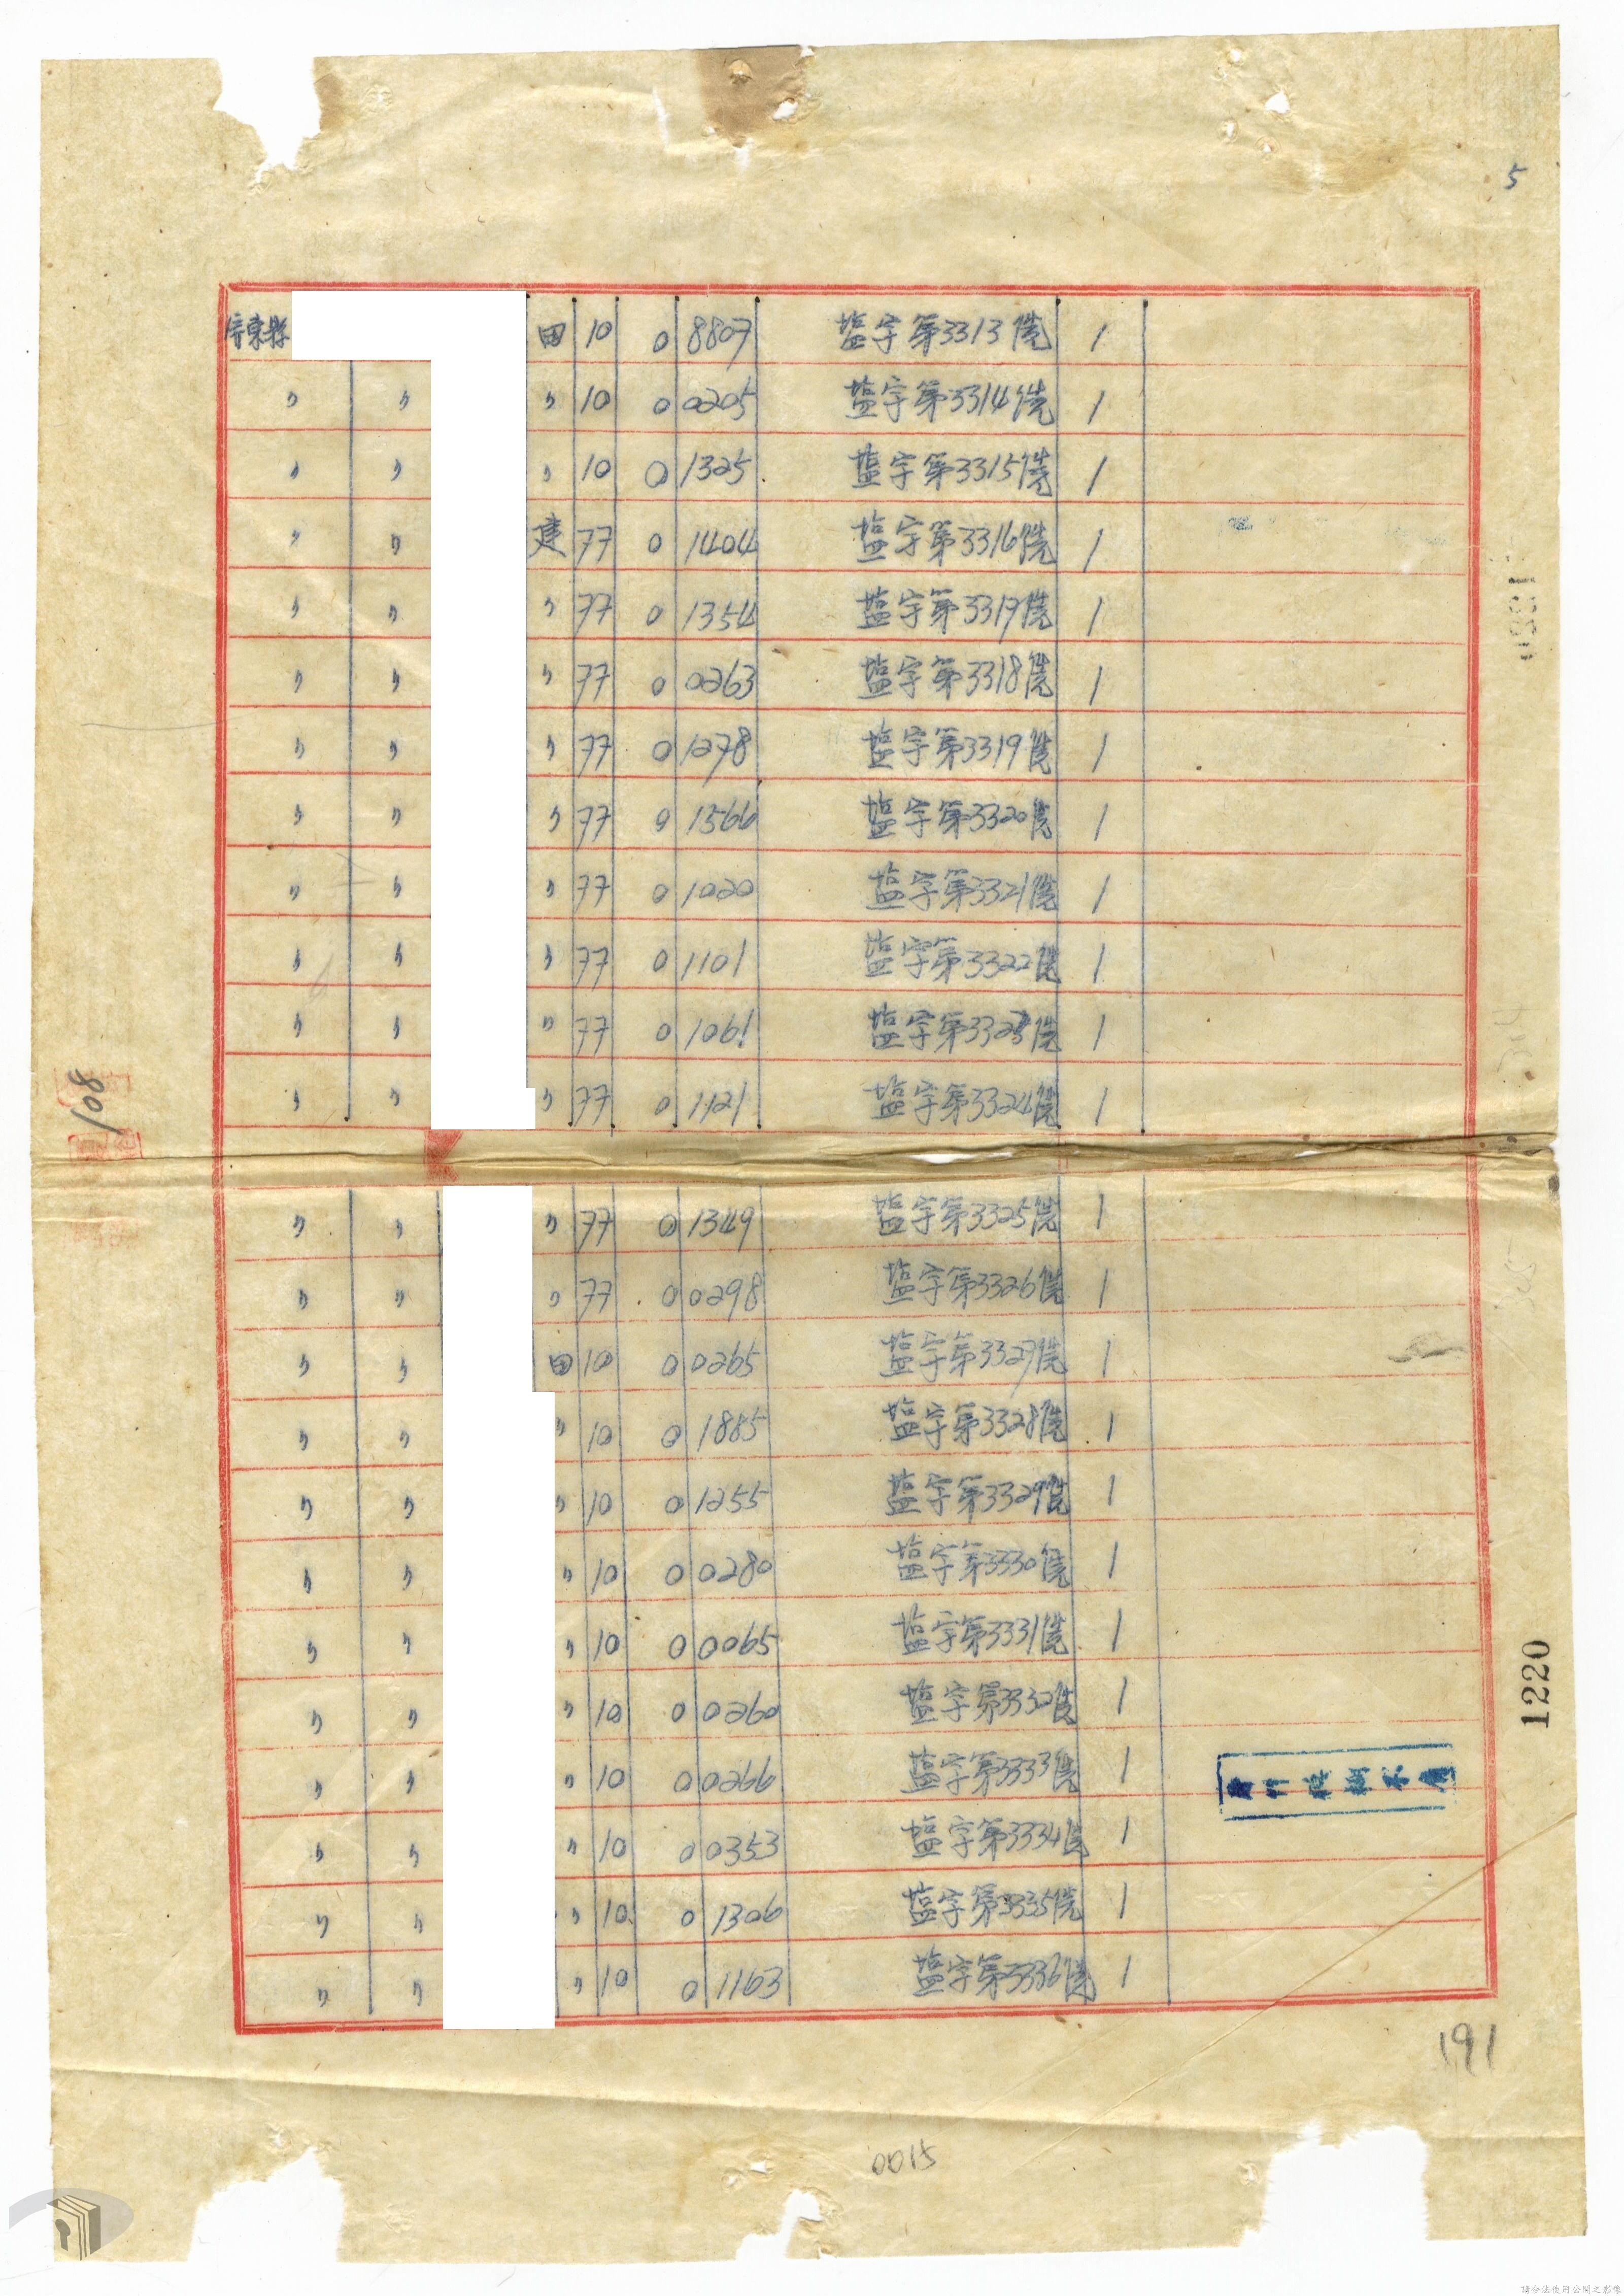 5
屏東縣 田 10 0 8807 塩字第3313號 1
〃 〃 〃 10 0 0205 塩字第3314號 1
〃 〃 〃 10 0 1325 塩字第3315號 1
〃 〃 建 77 0 1404 塩字第3316號 1
〃 〃 〃 77 0 1354 塩字第3317號 1
〃 〃 〃 77 0 0263 塩字第3318號 1
〃 〃 〃 77 0 1278 塩字第3319號 1
〃 〃 〃 77 0 1566 塩字第3320號 1
〃 〃 〃 77 0 1020 塩字第3321號 1
〃 〃 〃 77 0 1101 塩字第3322號 1
〃 〃 〃 77 0 1061 塩字第3323號 1
〃 〃 〃 77 0 1121 塩字第3324號 1
108
〃 〃 〃 77 0 1349 塩字第3325號 1
〃 〃 〃 77 0 0298 塩字第3326號 1
〃 〃 田 10 0 0265 塩字第3327號 1
〃 〃 〃 10 0 1885 塩字第3328號 1
〃 〃 〃 10 0 1255 塩字第3329號 1
〃 〃 〃 10 0 0280 塩字第3330號 1
〃 〃 〃 10 0 0065 塩字第3331號 1
〃 〃 〃 10 0 0260 塩字第3332號 1
1220
〃 〃 〃 10 0 0266 塩字第3333號 1
〃 〃 〃 10 0 0353 塩字第3334號 1
〃 〃 〃 10 0 1306 塩字第3335號 1
〃 〃 〃 10 0 1163 塩字第3336號 1
191
0015
請合法使用公開之影像